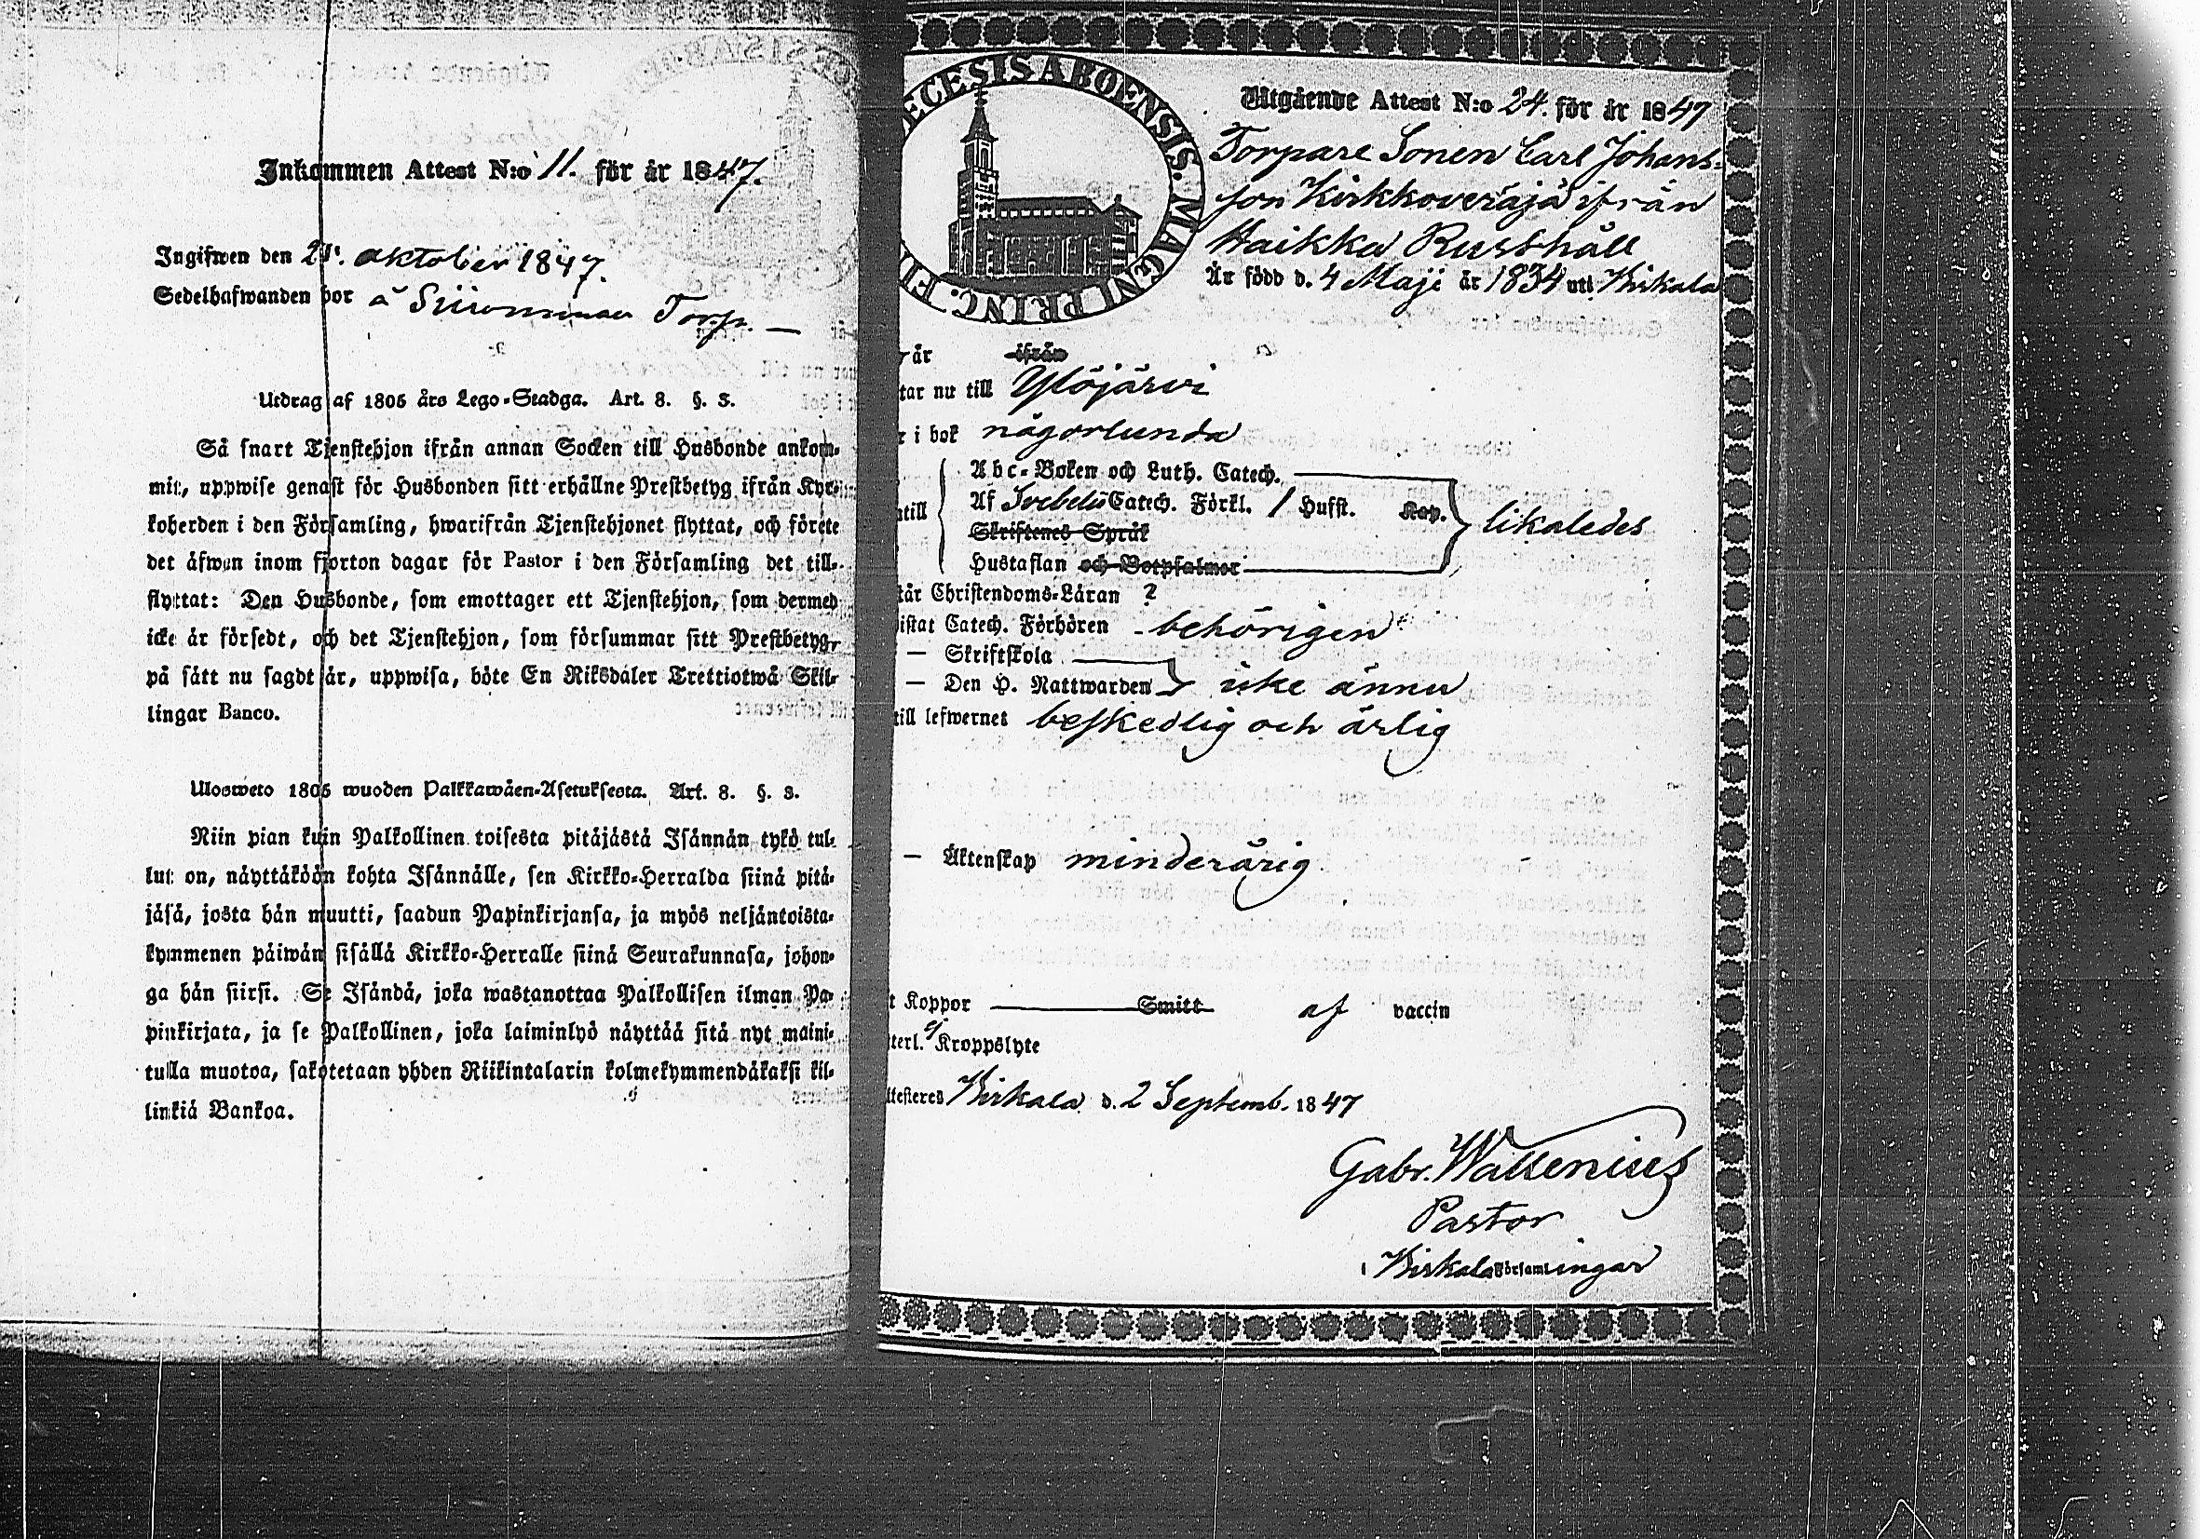 Inkommen Attest N:o 11. för år 1847.
Ingifwen den 21. oktober 1847.
Sedelhafwanden bor å Torp.
Utdrag af 1805 års Lego-Stadga. Art. 8. §. 3.
Så snart Tjenstehjon ifrån annan Socken till Husbonde ankom-
mit, uppwise genast för Husbonden sitt erhållne Prestbetyg ifrån Kyr-
koherden i den Församling, hwarifrån Tjenstehjonet flyttat, och förete
det äfwen inom fjorton dagar för Pastor i den Församling det till-
flyttat: Den Husbonde, som emottager ett Tjenstehjon, som dermed
icke är försedt, och det Tjenstehjon, som försummar sitt Prestbetyg,
på sätt nu sagdt är, uppwisa, böte En Riksdaler Trettiotwå Skil-
lingar Banco.
Ulosweto 1805 wuoden Palkkawäen-Asetuksesta. Art. 8. §. 3.
Niin pian kuin Palkollinen toisesta pitäjästä Isännän tykö tul-
lut on, näyttäköön kohta Isännälle, sen Kirkko-Herralda siinä pitä-
jäsä, josta hän muutti, saadun Papinkirjansa, ja myös neljäntoista-
kymmenen päiwän sisällä Kirkko-Herralle siinä Seurakunnasa, johon-
ga hän siirsi. Se Isändä, joka wastanottaa Palkollisen ilman Pa-
pinkirjata, ja se Palkollinen, joka laiminlyö näyttää sitä nyt maini-
tulla muotoa, sakotetaan yhden Riikintalarin kolmekymmendäkaksi kil-
linkiä Bankoa.
ECESIS ABOENSIS. MAGNI PRINC. FI
Utgående Attest N:o 24. för år 1847
Torpare Sonen Carl Johans-
son Kirkkoveräjä ifrån
Haikka Rusthåll
Är född d. 4 Maji år 1834 uti Kirkala
r är ifrån
tar nu till Ylöjärvi
r i bok någorlunda
Abc-Boken och Luth. Catech.
ntill Af Svebelii Catech. Förkl. / Hufst. Kap. likaledes
Skriftenes Språk
Hustaflan och Botpsalmer
tår Christendoms-Läran ?
istat Catech. Förhören behörigen
— Skriftskola
— Den H. Nattwarden icke ännu
till lefwernet beskedlig och ärlig
— Äktenskap minderårig
t Koppor Smitt af vaccin
terl. ej Kroppslyte
ttesteres Kirkala d. 2 Septemb. 1847
Gabr. Wallenius
Pastor
i Kirkala Församlingar